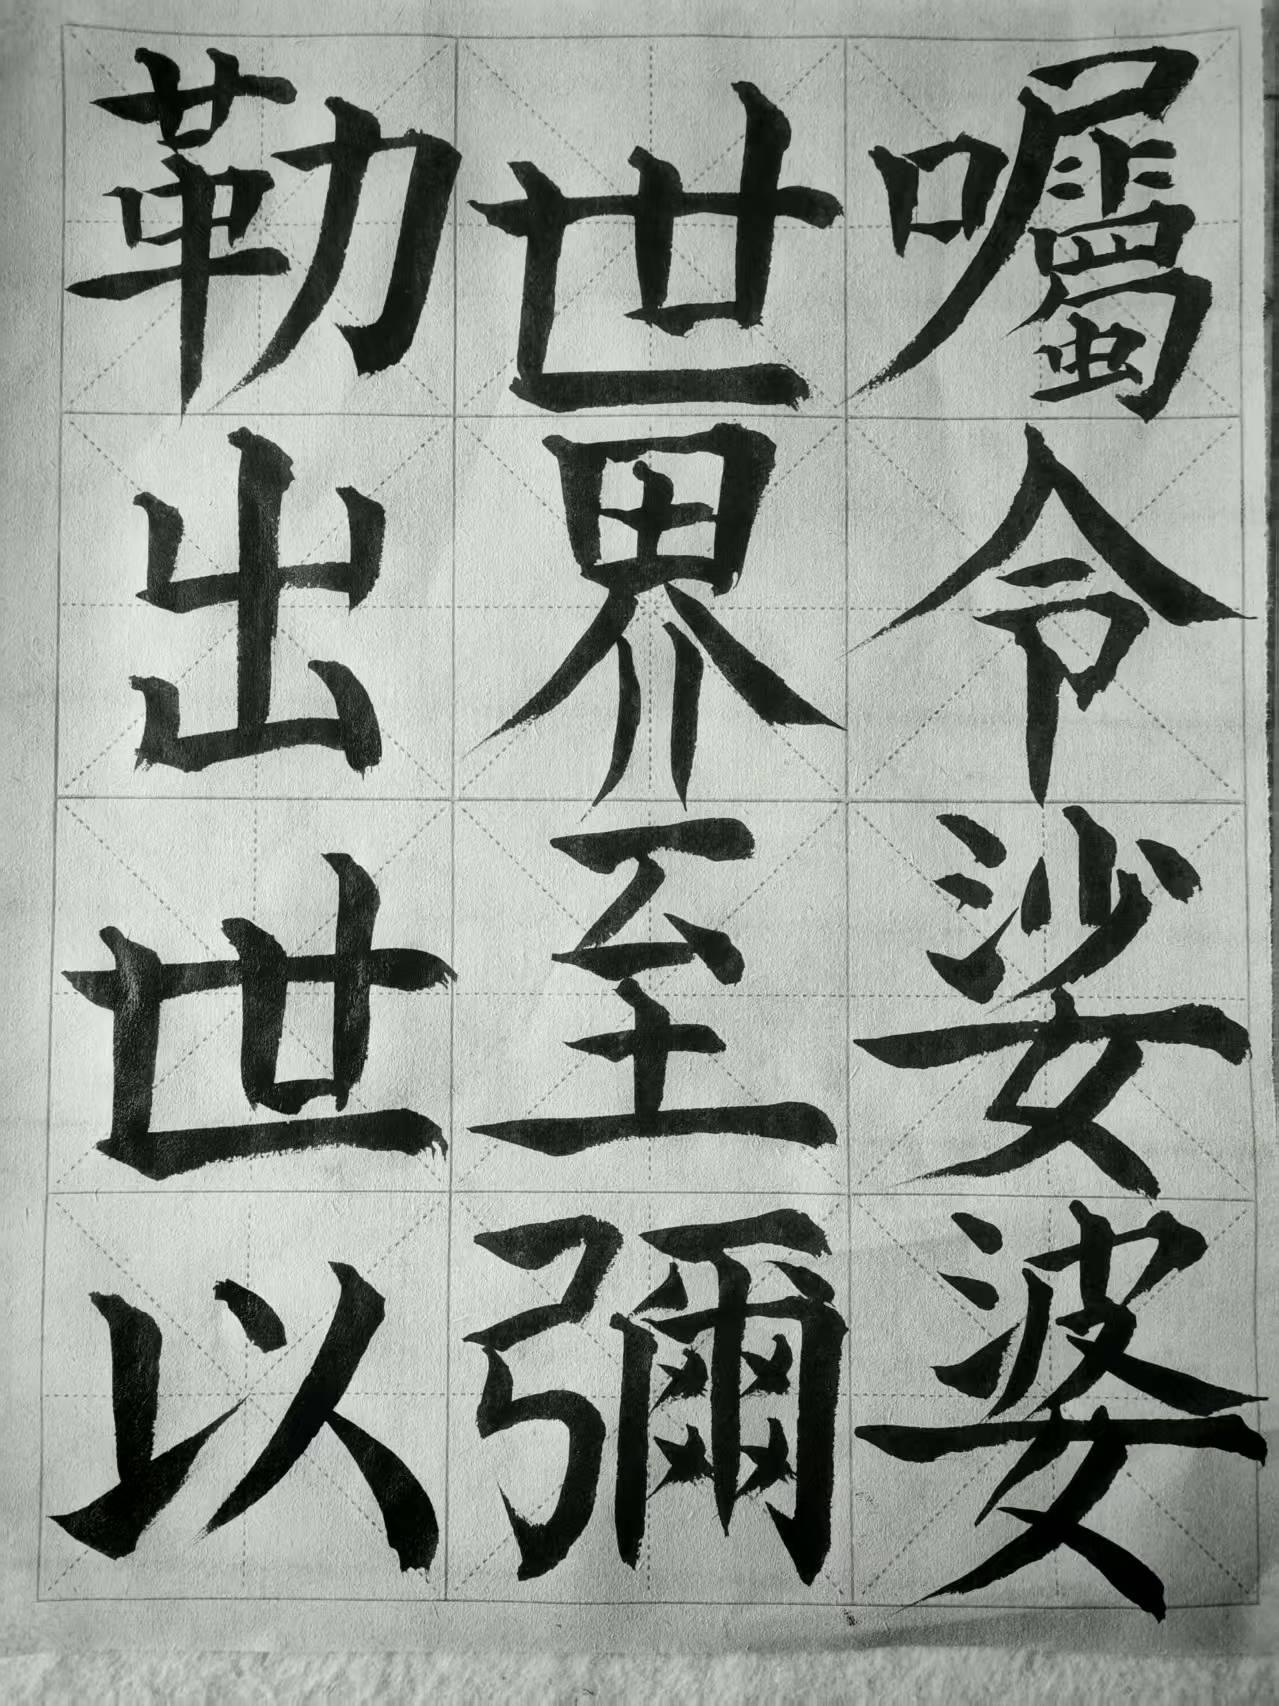 囑令娑婆
世界至彌
勒出世以